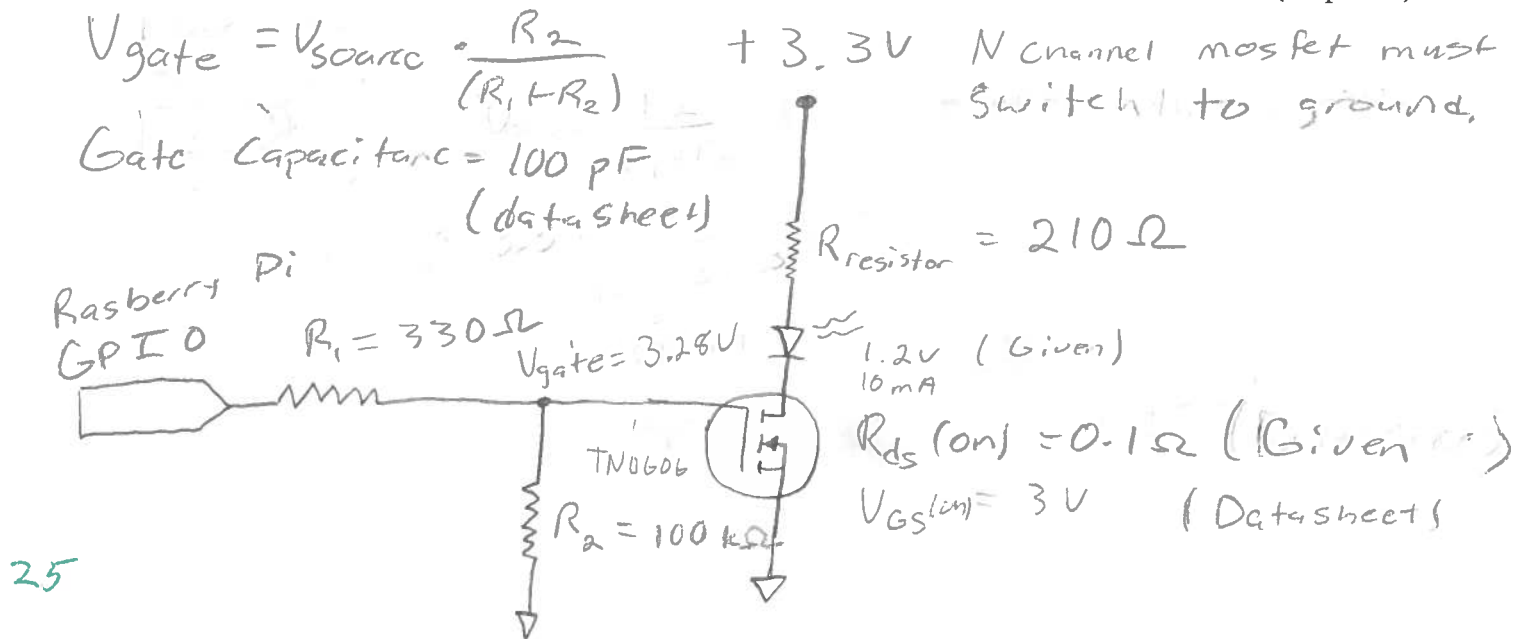 Vgate = Vsource · R2 / (R1 + R2)
+3.3V
N channel mosfet must
switch to ground.
Gate Capacitanc = 100 pF
(datasheet)
Rresistor = 210 Ω
Rasberry Pi
GPIO
R1 = 330 Ω
Vgate = 3.28V
1.2v (Given)
10mA
TN0606
Rds (on) = 0.1 Ω (Given)
VGS(on) = 3V (Datasheet)
R2 = 100 kΩ
25